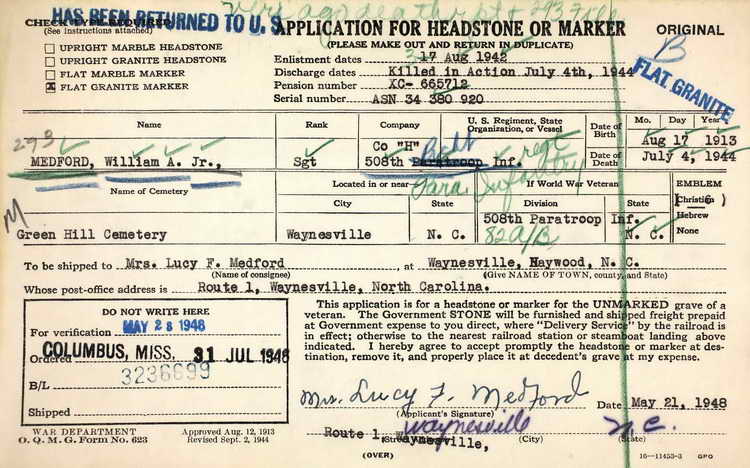 HAS BEEN RETURNED TO U. S.
CHECK TYPE REQUIRED
(See instructions attached)
UPRIGHT MARBLE HEADSTONE
UPRIGHT GRANITE HEADSTONE
FLAT MARBLE MARKER
X FLAT GRANITE MARKER
APPLICATION FOR HEADSTONE OR MARKER
(PLEASE MAKE OUT AND RETURN IN DUPLICATE)
ORIGINAL
B
FLAT GRANITE
Enlistment dates 17 Aug 1942
Discharge dates Killed in Action July 4th, 1944
Pension number XC- 665712
Serial number ASN 34 380 920
293
Name Rank Company U. S. Regiment, State Organization, or Vessel Date of Birth Mo. Day Year
Aug 17 1913
MEDFORD, William A. Jr., Sgt Co "H" 508th Paratroop Inf. Date of Death July 4, 1944
regt
Para Infantry
Name of Cemetery Located in or near If World War Veteran EMBLEM
City State Division State
(Christian)
Hebrew
None
M
Green Hill Cemetery Waynesville N. C. 508th Paratroop Inf. N. C.
82 A/B
To be shipped to Mrs. Lucy F. Medford at Waynesville, Haywood, N. C.
(Name of consignee) (Give NAME OF TOWN, county, and State)
Whose post-office address is Route 1, Waynesville, North Carolina.
DO NOT WRITE HERE
For verification MAY 28 1948
Ordered COLUMBUS, MISS. 31 JUL 1948
B/L 3236699
Shipped
This application is for a headstone or marker for the UNMARKED grave of a
veteran. The Government STONE will be furnished and shipped freight prepaid
at Government expense to you direct, where "Delivery Service" by the railroad is
in effect; otherwise to the nearest railroad station or steamboat landing above
indicated. I hereby agree to accept promptly the headstone or marker at des-
tination, remove it, and properly place it at decedent's grave at my expense.
Mrs. Lucy F. Medford Date May 21, 1948
(Applicant's Signature)
Waynesville N.C.
Route 1, Waynesville,
(City) (State)
WAR DEPARTMENT
O. Q. M. G. Form No. 623
Approved Aug. 12, 1913
Revised Sept. 2, 1944
(OVER)
16—11453-3 GPO